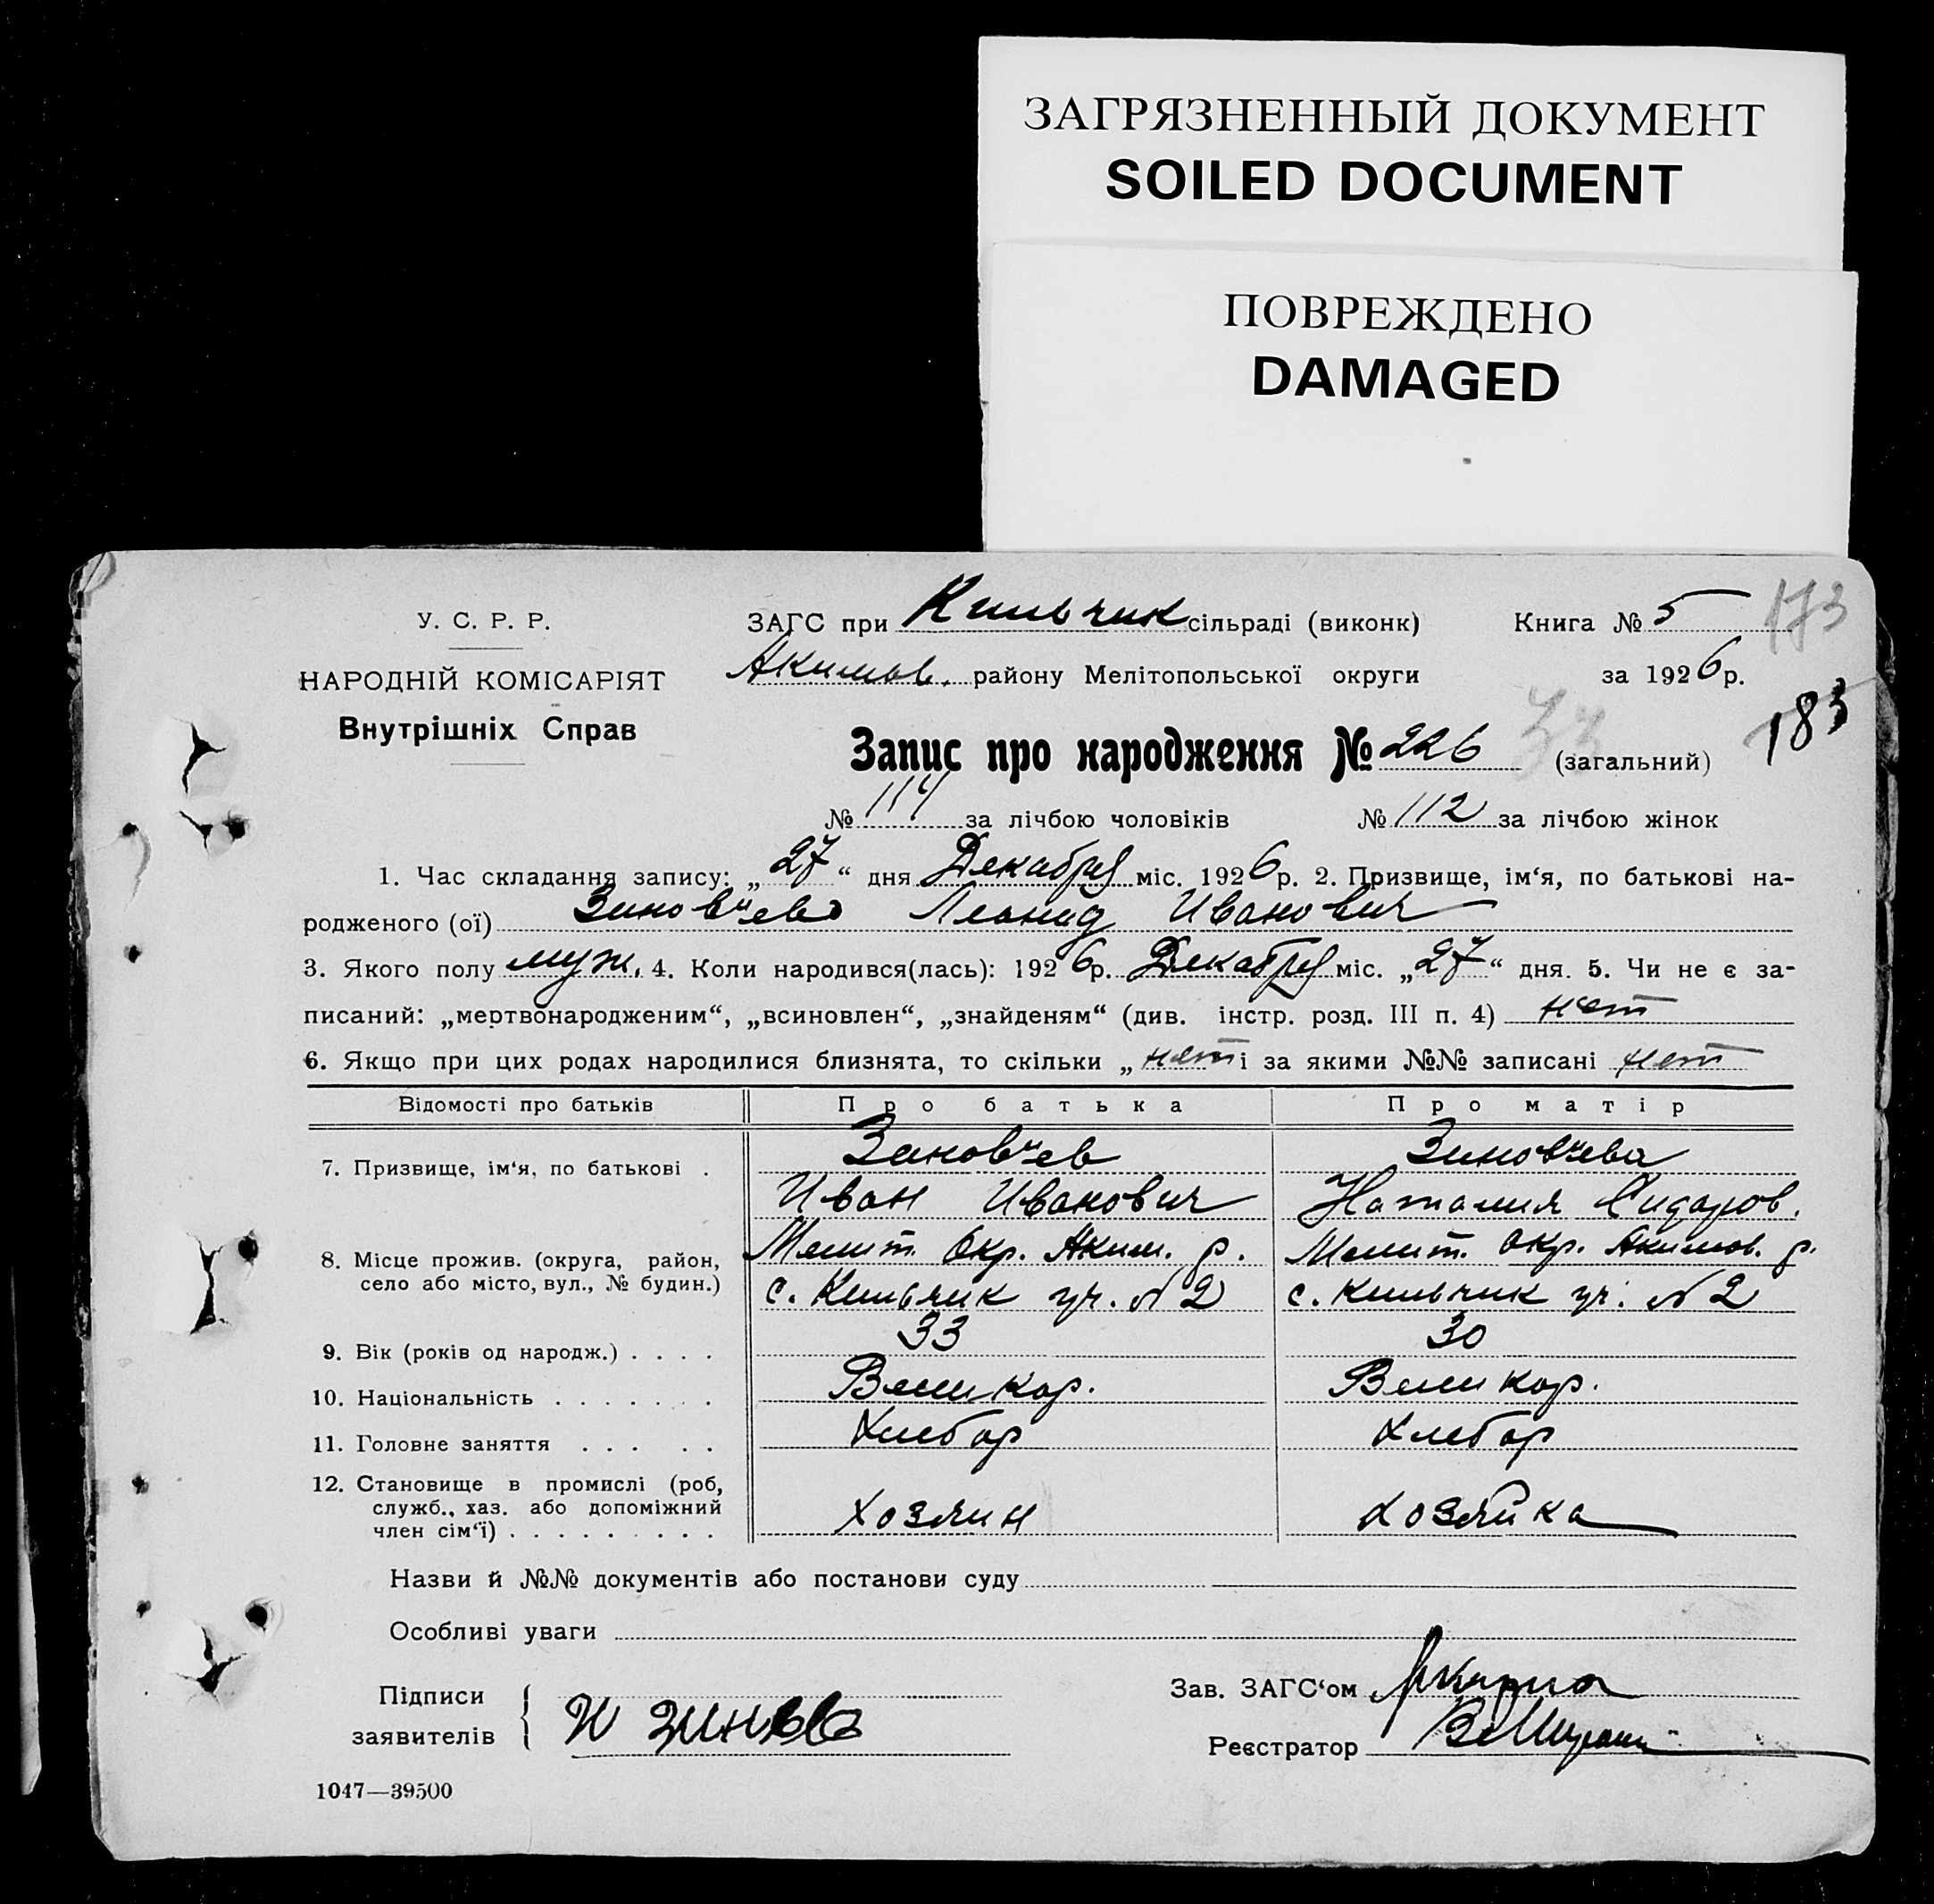 ЗАГРЯЗНЕННЫЙ ДОКУМЕНТ
SOILED DOCUMENT
ПОВРЕЖДЕНО
DAMAGED
У. С. Р. Р.
НАРОДНІЙ КОМІСАРІЯТ
Внутрішніх Справ
ЗАГС при Кильчик сільраді (виконк) Книга № 5 173
Акимов. району Мелітопольської округи за 1926 р.
183
Запис про народження № 226 (загальний)
33
№ 114 за лічбою чоловіків № 112 за лічбою жінок
1. Час складання запису: „27“ дня Декабря міс. 1926 р. 2. Призвище, ім‘я, по батькові на-
родженого (ої) Зиновчев Леонид Иванович
3. Якого полу муж. 4. Коли народився(лась): 1926 р. Декабря міс. „27“ дня. 5. Чи не є за-
писаний: „мертвонародженим“, „всиновлен“, „знайденям“ (див. інстр. розд. III п. 4) нет
6. Якщо при цих родах народилися близнята, то скільки „нет і за якими №№ записані нет
Відомості про батьків Про батька Про матір
7. Призвище, ім‘я, по батькові . Зиновчев Зиновчева
Иван Иванович Наталия Сидоров.
8. Місце прожив. (округа, район, Мелит. Окр. Аким. р. Мелит. окр. Акимов. р.
село або місто, вул., № будин.) с. Кильчик уч. № 2 с. Кильчик уч. № 2
9. Вік (років од народж.) . . . . 33 30
10. Національність . . . . . . . Великор. Великор.
11. Головне заняття . . . . . Хлебор Хлебор
12. Становище в промислі (роб,
служб., хаз. або допоміжний
член сім‘ї) . . . . . . . . . Хозяин Хозяйка
Назви й №№ документів або постанови суду
Особливі уваги
Підписи
заявителів
Зав. ЗАГС‘ом
Реєстратор
1047—39500